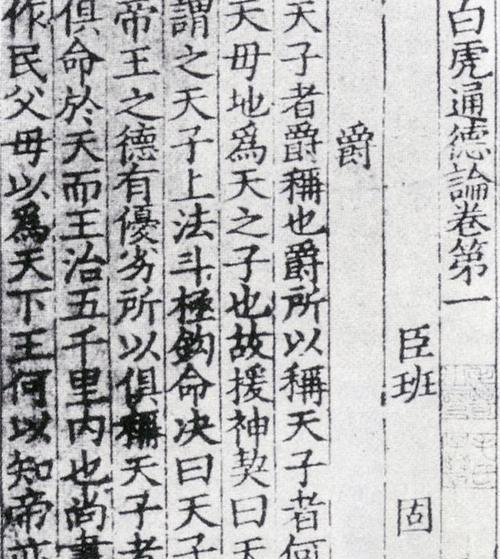 白虎通德論卷第一
臣班固
爵
天子者爵稱也爵所以稱天子者何
天母地爲天之子也故援神契曰天
謂之天子上法斗極鈎命决曰天子
帝王之德有優劣所以俱稱天子者
俱命於天而王治五千里内也尚書
作民父母以爲天下王何以知帝亦